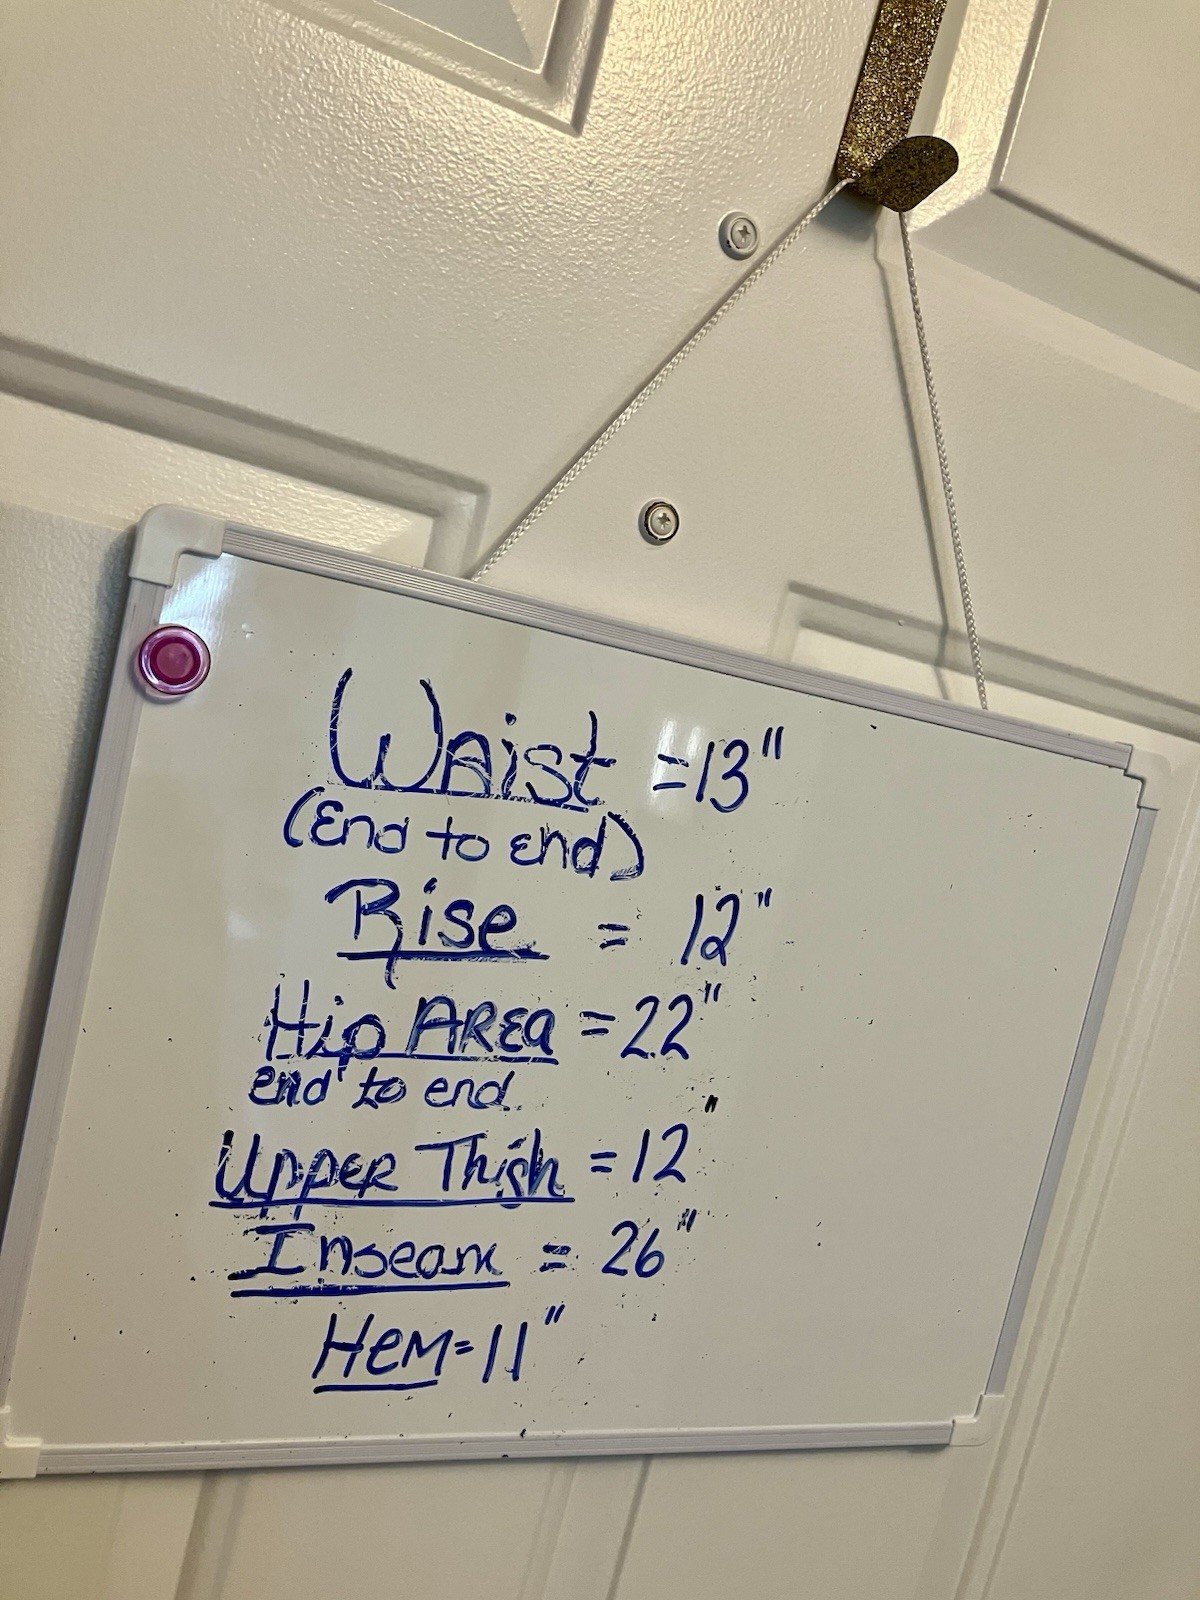 Waist = 13"
(End to end)
Rise = 12"
Hip AREa = 22"
end to end
UppER Thigh = 12"
Inseam = 26"
HeM = 11"